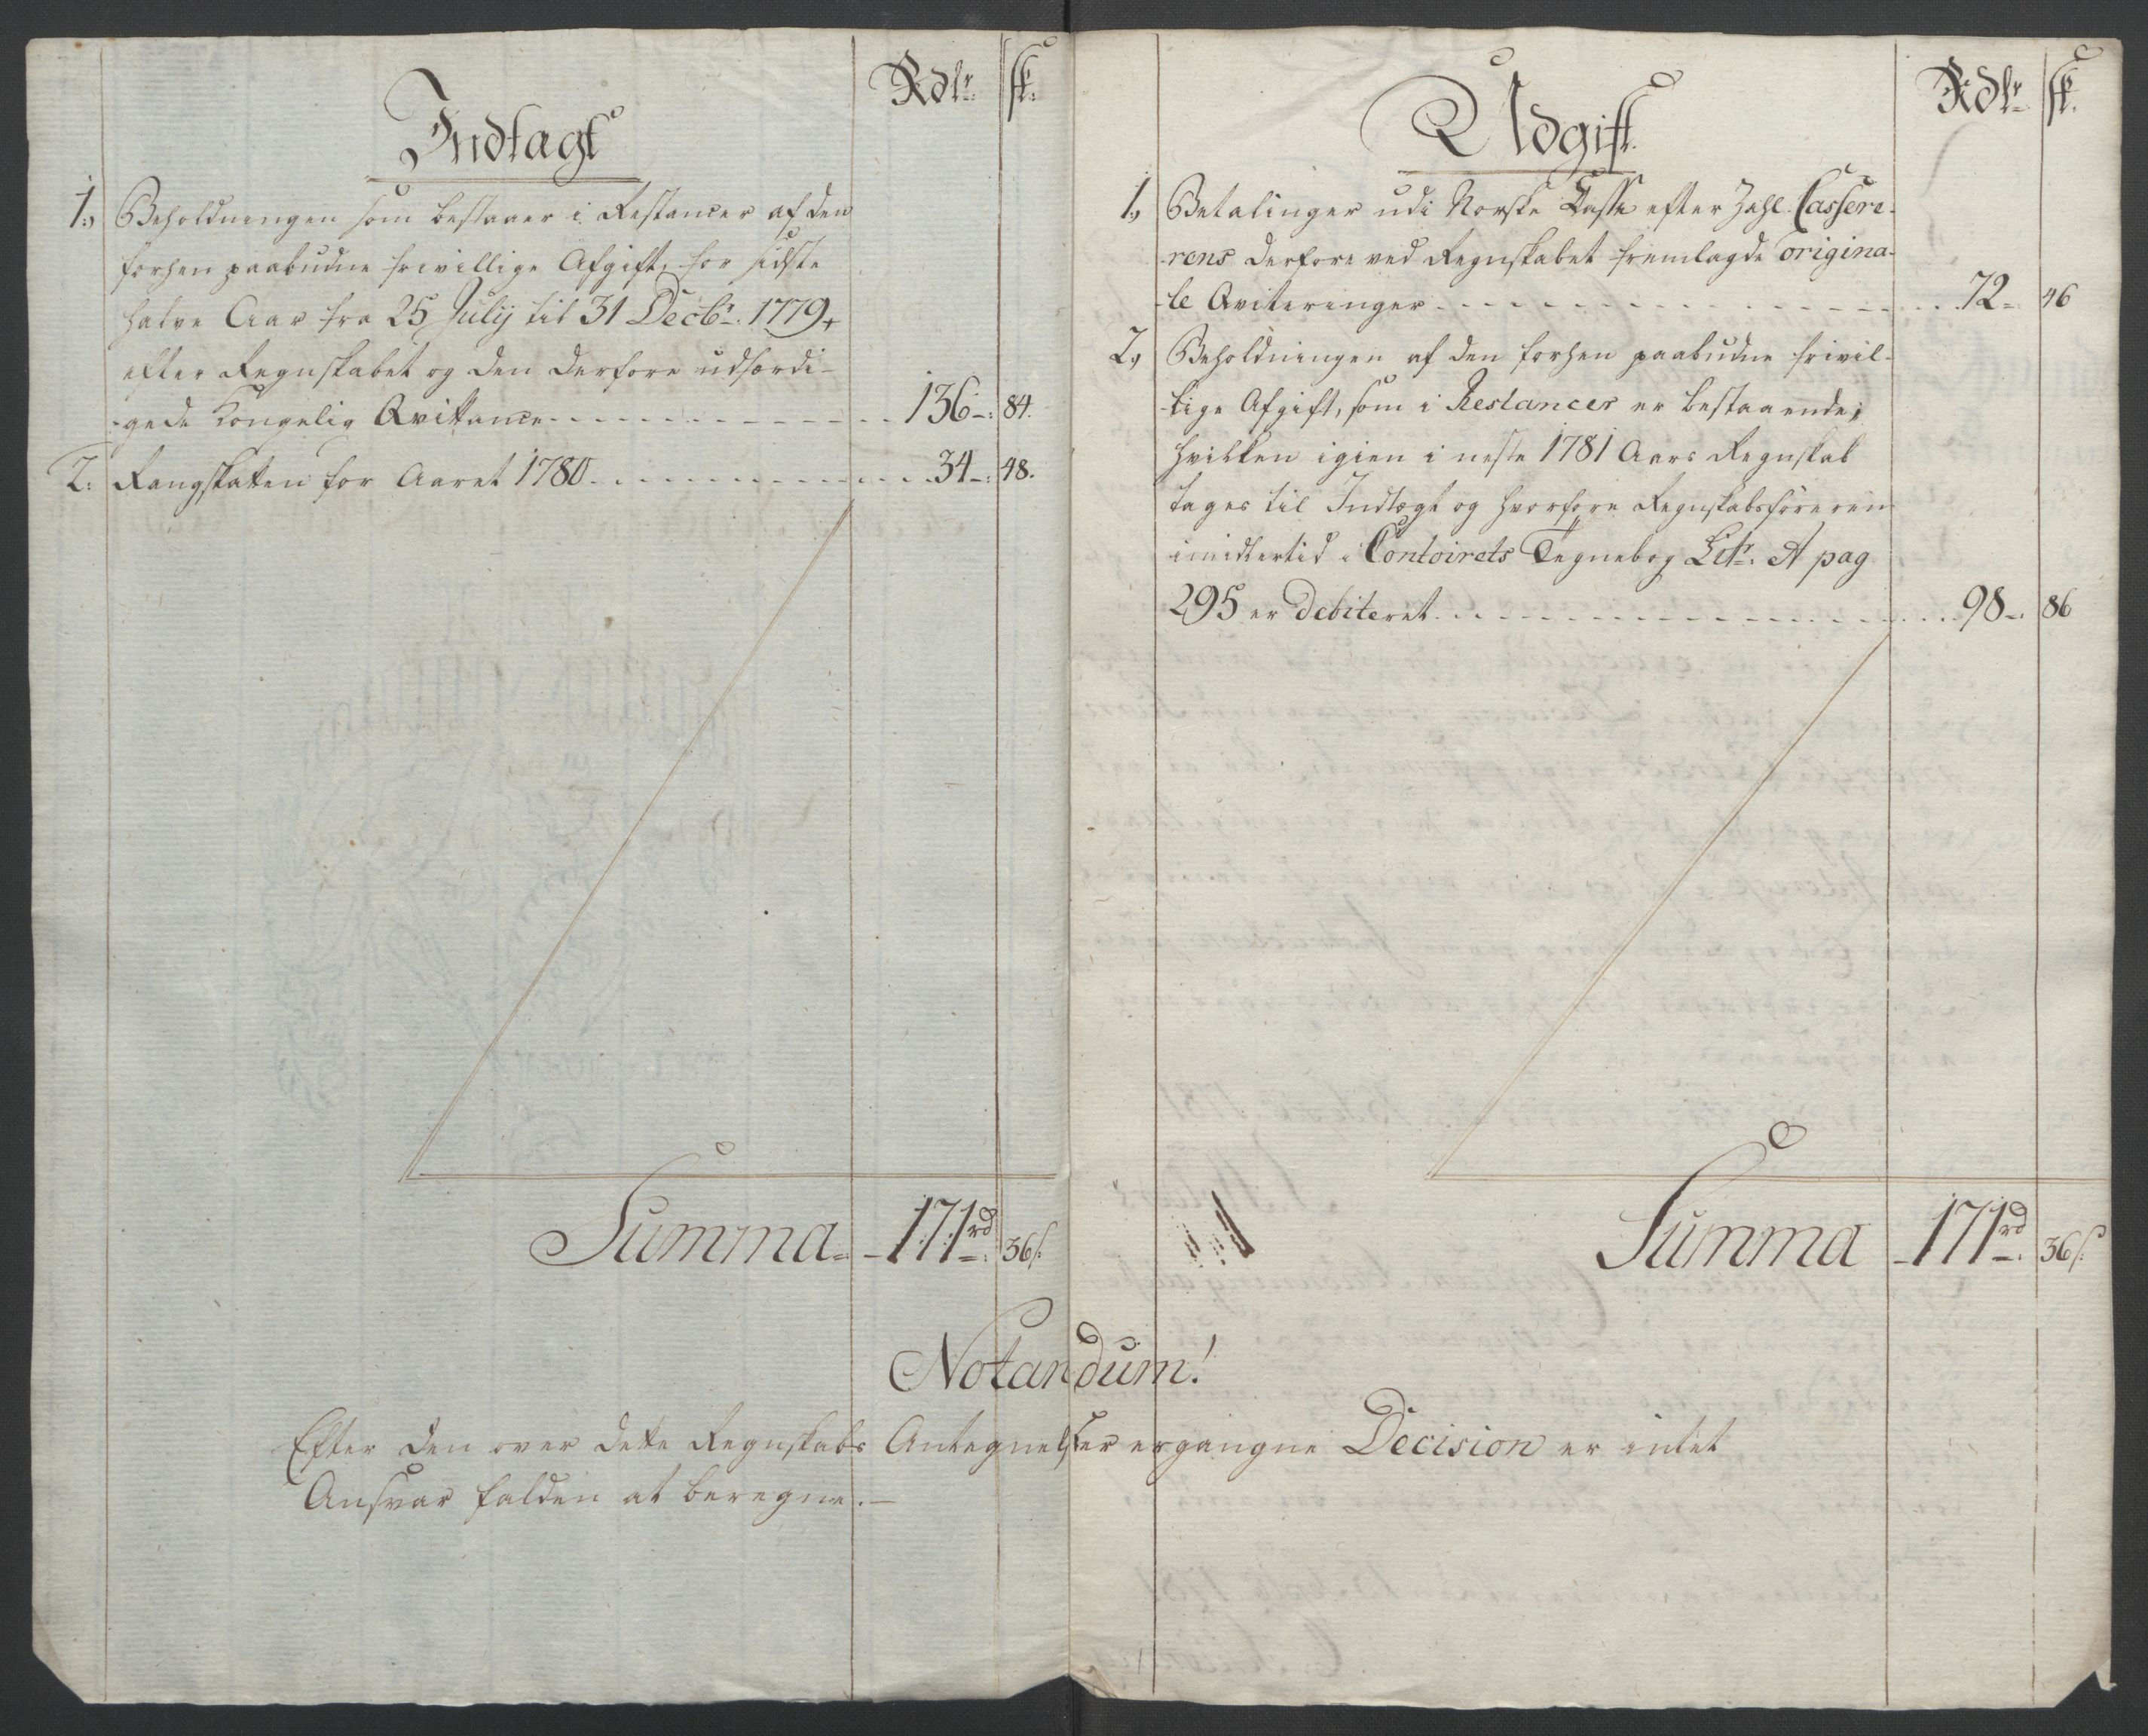 Rdlr. sk:
Indtægt
1., Beholdningen som bestaaer i Restancer af den
forhen paabudne frivillige Afgift, for sidste
halve Aar fra 25 Julij til 31 Decbr. 1779,
efter Regnskabet og den derfore udfærdi-
-gede Kongelig Qvittance 136-: 84.
2: Rangskatten for Aaret 1780 34-: 48.
Summa 171rd-: 36s:
Rdlr. sk.
Udgift.
1., Betalinger udi Norske Casse efter Zahl-Cassere-
-rens derfore ved Regnskabet fremlagde origina-
-le Qviteringer 72-: 46
2, Beholdningen af den forhen paabudne frivil-
-lige Afgift, som i Restancer er bestaaende;
hvilken igien i neste 1781 Aars Regnskab
tages til Indtægt og hvorfore Regnskabsføreren
imidlertid i Contoirets Tegnebog Litr. A pag
295 er debiteret 98-: 86
Summa 171rd-: 36s:
Notandum!
Efter den over dette Regnskabs Antegnelser ergangne Decision er intet
Ansvar falden at beregne.-